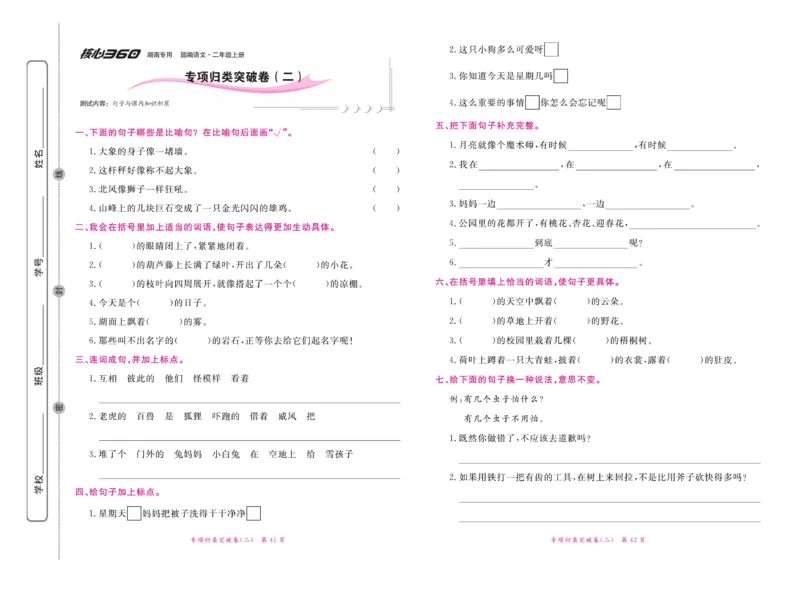 核心360 湖南专用 部编语文·二年级上册
专项归类突破卷（二）
测试内容：句子与课内知识积累
一、下面的句子哪些是比喻句？在比喻句后面画“√”。
1.大象的身子像一堵墙。（ ）
2.这杆秤好像称不起大象。（ ）
3.北风像狮子一样狂吼。（ ）
4.山峰上的几块巨石变成了一只金光闪闪的雄鸡。（ ）
二、我会在括号里加上适当的词语,使句子表达得更加生动具体。
1.（ ）的眼睛闭上了,紧紧地闭着。
2.（ ）的葫芦藤上长满了绿叶,开出了几朵（ ）的小花。
3.（ ）的枝叶向四周展开,就像搭起了一个个（ ）的凉棚。
4.今天是个（ ）的日子。
5.湖面上飘着（ ）的雾。
6.那些叫不出名字的（ ）的岩石,正等你去给它们起名字呢！
三、连词成句,并加上标点。
1.互相 彼此的 他们 怪模样 看着
2.老虎的 百兽 是 狐狸 吓跑的 借着 威风 把
3.堆了个 门外的 兔妈妈 小白兔 在 空地上 给 雪孩子
四、给句子加上标点。
1.星期天□妈妈把被子洗得干干净净□
专项归类突破卷(二) 第41页
2.这只小狗多么可爱呀□
3.你知道今天是星期几吗□
4.这么重要的事情□你怎么会忘记呢□
五、把下面句子补充完整。
1.月亮就像个魔术师,有时候____,有时候____。
2.我在____,在____,在____,
____。
3.妈妈一边____,一边____。
4.公园里的花都开了,有桃花、杏花、迎春花,____。
5.____到底____呢?
6.____才____。
六、在括号里填上恰当的词语,使句子更具体。
1.（ ）的天空中飘着（ ）的云朵。
2.（ ）的草地上开着（ ）的野花。
3.（ ）的校园里栽着几棵（ ）的梧桐树。
4.荷叶上蹲着一只大青蛙,披着（ ）的衣裳,露着（ ）的肚皮。
七、给下面的句子换一种说法,意思不变。
例:有几个虫子怕什么?
有几个虫子不用怕。
1.既然你做错了,不应该去道歉吗?
2.如果用铁打一把有齿的工具,在树上来回拉,不是比用斧子砍快得多吗?
专项归类突破卷(二) 第42页
姓名
学号
班级
学校
线
封
密